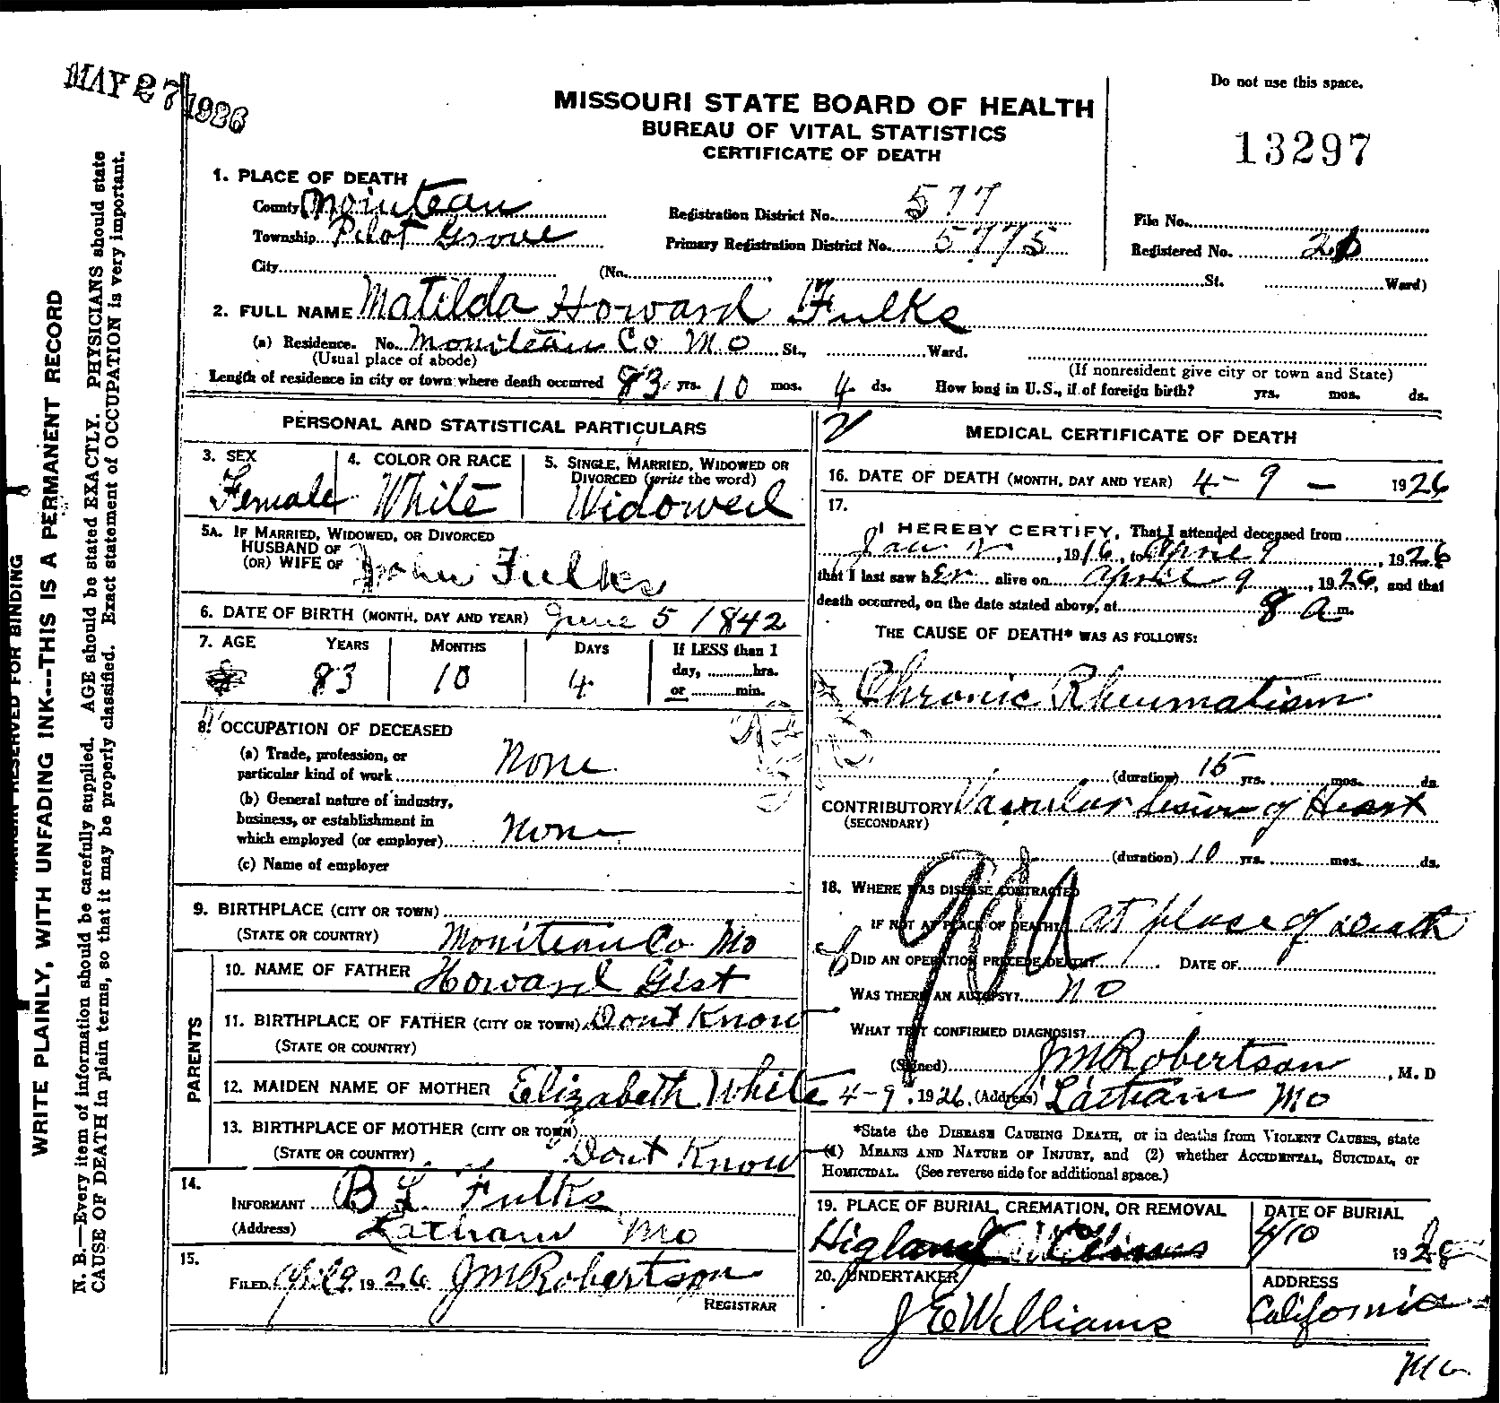 MAY 27 1926
Do not use this space.
MISSOURI STATE BOARD OF HEALTH
BUREAU OF VITAL STATISTICS
CERTIFICATE OF DEATH
13297
1. PLACE OF DEATH
County Moniteau Registration District No. 577 File No.
Township Pilot Grove Primary Registration District No. 5775 Registered No.
City (No. St. Ward)
2. FULL NAME Matilda Howard Fulks
(a) Residence. No. Moniteau Co Mo St., Ward.
(Usual place of abode) (If nonresident give city or town and State)
Length of residence in city or town where death occurred 83 yrs. 10 mos. 4 ds. How long in U.S., if of foreign birth? yrs. mos. ds.
PERSONAL AND STATISTICAL PARTICULARS
3. SEX Female
4. COLOR OR RACE White
5. SINGLE, MARRIED, WIDOWED OR
DIVORCED (write the word)
Widowed
5A. IF MARRIED, WIDOWED, OR DIVORCED
HUSBAND OF
(OR) WIFE OF John Fulks
6. DATE OF BIRTH (MONTH, DAY AND YEAR) June 5 1842
7. AGE YEARS MONTHS DAYS If LESS than 1
day, hrs.
or min.
83 10 4
8. OCCUPATION OF DECEASED
(a) Trade, profession, or
particular kind of work None
(b) General nature of industry,
business, or establishment in
which employed (or employer) None
(c) Name of employer
9. BIRTHPLACE (CITY OR TOWN)
(STATE OR COUNTRY) Moniteau Co Mo
PARENTS
10. NAME OF FATHER Howard Gist
11. BIRTHPLACE OF FATHER (CITY OR TOWN) Dont Know
(STATE OR COUNTRY)
12. MAIDEN NAME OF MOTHER Elizabeth White
13. BIRTHPLACE OF MOTHER (CITY OR TOWN)
(STATE OR COUNTRY) Dont Know
14.
INFORMANT B L Fulks
(Address) Latham Mo
15.
FILED 1926 JM Robertson
REGISTRAR
MEDICAL CERTIFICATE OF DEATH
16. DATE OF DEATH (MONTH, DAY AND YEAR) 4-9- 1926
17.
I HEREBY CERTIFY, That I attended deceased from
Jan 1916, to April 9, 1926
that I last saw her alive on April 9, 1926, and that
death occurred, on the date stated above, at 8 a m.
THE CAUSE OF DEATH* WAS AS FOLLOWS:
Chronic Rheumatism
(duration) 15 yrs. mos. ds.
CONTRIBUTORY Lesion of Heart
(SECONDARY)
(duration) 10 yrs. mos. ds.
18. WHERE WAS DISEASE CONTRACTED
IF NOT AT PLACE OF DEATH? at place of Death
DID AN OPERATION PRECEDE DEATH? DATE OF
WAS THERE AN AUTOPSY? no
WHAT TEST CONFIRMED DIAGNOSIS?
(Signed) JM Robertson, M. D
4-9, 1926. (Address) Latham Mo
*State the DISEASE CAUSING DEATH, or in deaths from VIOLENT CAUSES, state
(1) MEANS AND NATURE OF INJURY, and (2) whether ACCIDENTAL, SUICIDAL, or
HOMICIDAL. (See reverse side for additional space.)
19. PLACE OF BURIAL, CREMATION, OR REMOVAL
DATE OF BURIAL
4/10 1926
20. UNDERTAKER
J E Williams
ADDRESS
California
Mo
MARGIN RESERVED FOR BINDING
WRITE PLAINLY, WITH UNFADING INK---THIS IS A PERMANENT RECORD
N. B.—Every item of information should be carefully supplied. AGE should be stated EXACTLY. PHYSICIANS should state
CAUSE OF DEATH in plain terms, so that it may be properly classified. Exact statement of OCCUPATION is very important.